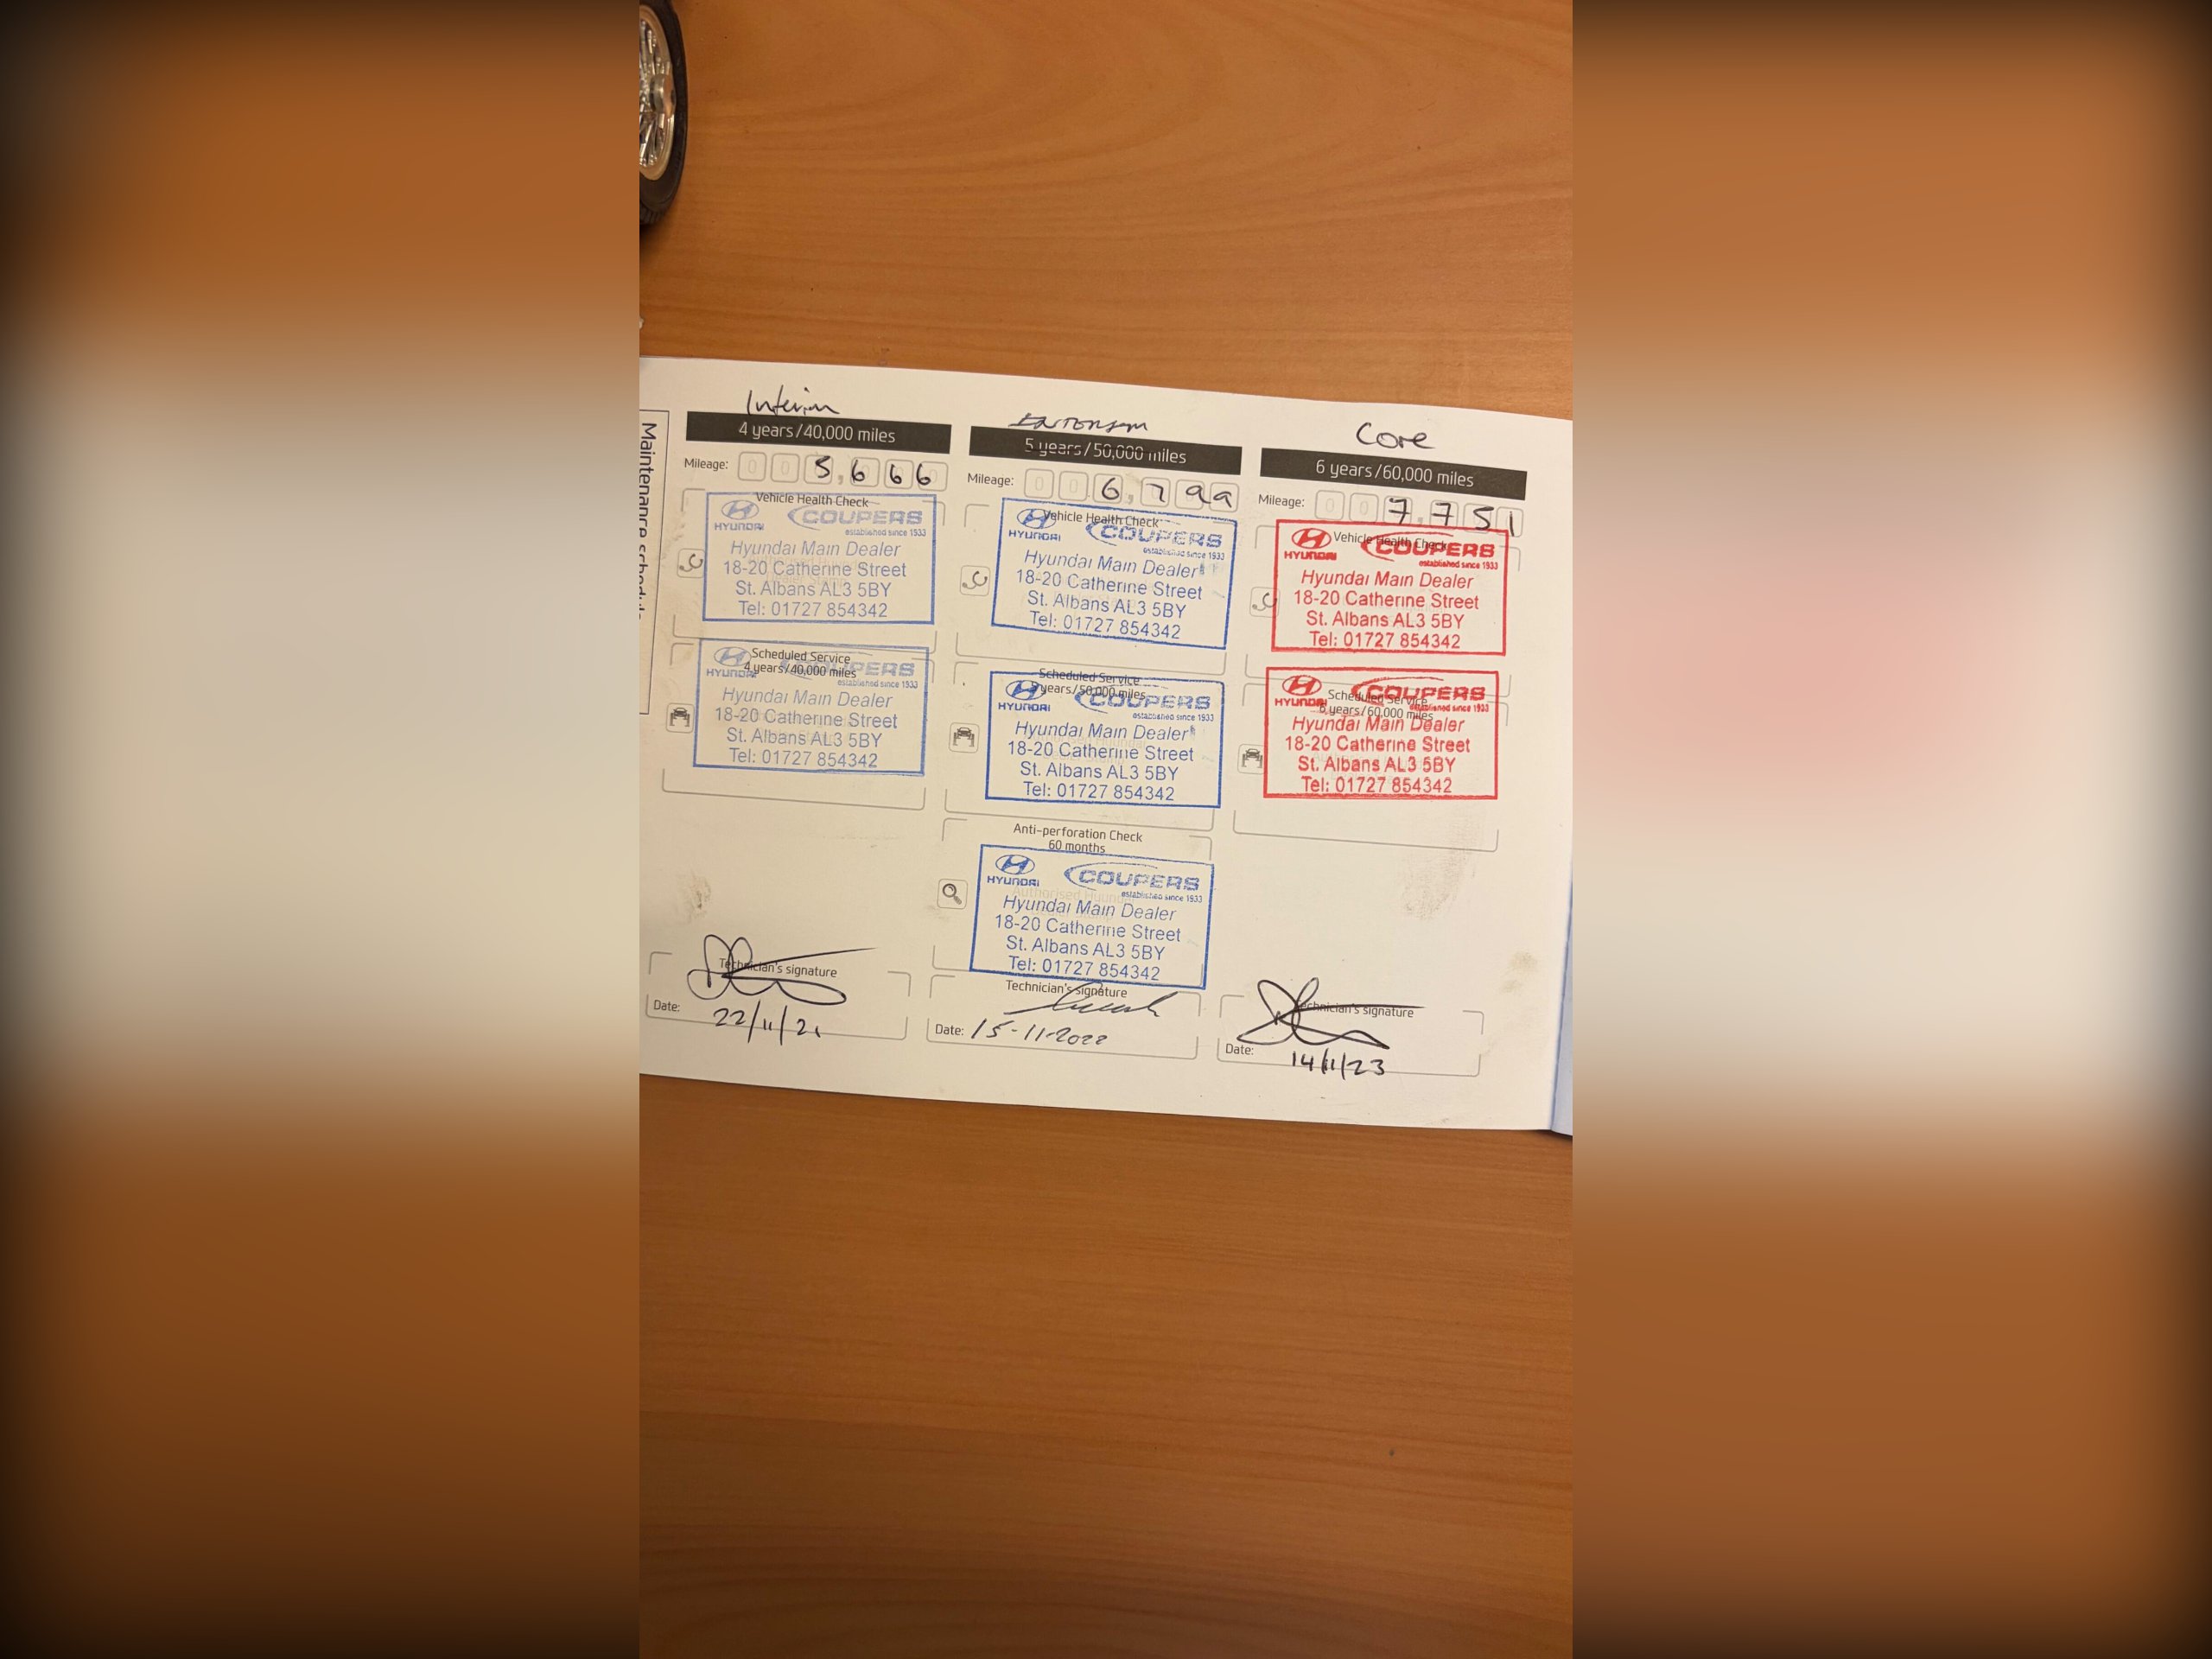 Maintenance schedule
Interim
4 years/40,000 miles
Mileage: 0 0 5,6 6 6
Vehicle Health Check
HYUNDAI COUPERS
established since 1933
Hyundai Main Dealer
18-20 Catherine Street
St. Albans AL3 5BY
Tel: 01727 854342
Scheduled Service
4 years/40,000 miles
HYUNDAI COUPERS
established since 1933
Hyundai Main Dealer
18-20 Catherine Street
St. Albans AL3 5BY
Tel: 01727 854342
Technician's signature
Date: 22/11/21
5 years/50,000 miles
Mileage: 0 0 6,7 9 9
Vehicle Health Check
HYUNDAI COUPERS
established since 1933
Hyundai Main Dealer
18-20 Catherine Street
St. Albans AL3 5BY
Tel: 01727 854342
Scheduled Service
5 years/50,000 miles
HYUNDAI COUPERS
established since 1933
Hyundai Main Dealer
18-20 Catherine Street
St. Albans AL3 5BY
Tel: 01727 854342
Anti-perforation Check
60 months
HYUNDAI COUPERS
established since 1933
Hyundai Main Dealer
18-20 Catherine Street
St. Albans AL3 5BY
Tel: 01727 854342
Technician's signature
Date: 15-11-2022
Core
6 years/60,000 miles
Mileage: 0 0 7,7 5 1
Vehicle Health Check
HYUNDAI COUPERS
established since 1933
Hyundai Main Dealer
18-20 Catherine Street
St. Albans AL3 5BY
Tel: 01727 854342
Scheduled Service
6 years/60,000 miles
HYUNDAI COUPERS
established since 1933
Hyundai Main Dealer
18-20 Catherine Street
St. Albans AL3 5BY
Tel: 01727 854342
Technician's signature
Date: 14/11/23